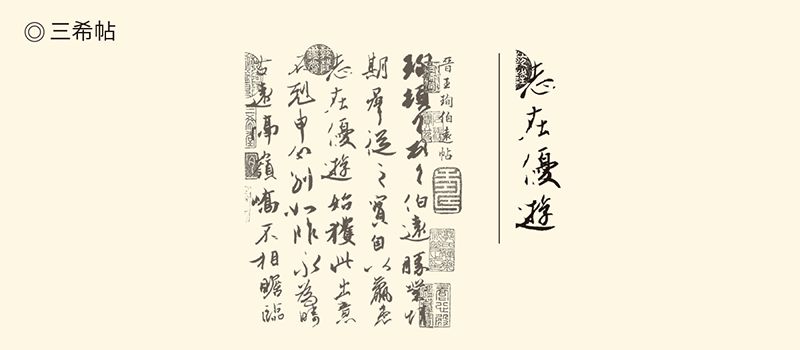 ◎ 三希帖
晉王珣伯遠帖
珣頓首頓首伯遠勝業情
期羣從之寶自以羸患
志在優遊始獲此出意
不剋申分別如昨永為疇
古遠隔嶺嶠不相瞻臨
志在優遊